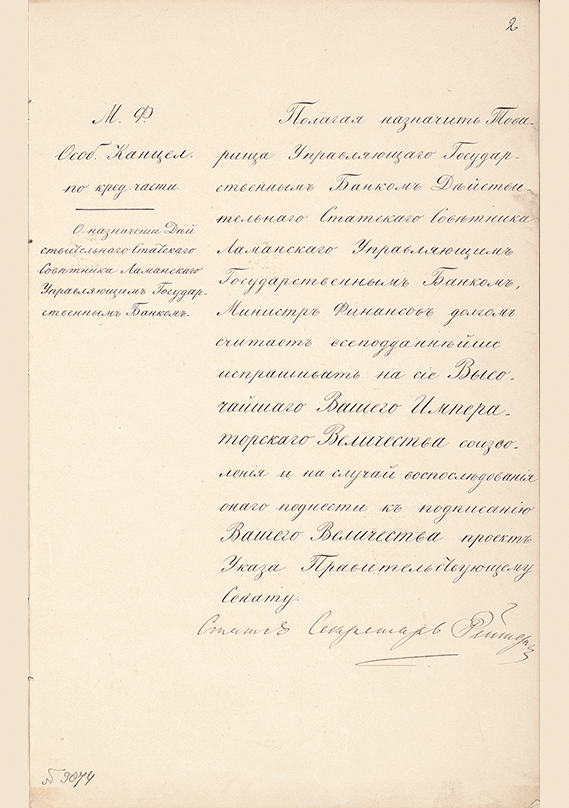 2
М. Ф.
Особ. Канцел.
по кред. части.
О назначении Дѣй
ствительнаго Статскаго
Совѣтника Ламанскаго
Управляющимъ Государ-
ственнымъ Банкомъ.
Полагая назначить Това-
рища Управляющаго Государ-
ственнымъ Банкомъ Дѣйстви-
тельнаго Статскаго Совѣтника
Ламанскаго Управляющимъ
Государственнымъ Банкомъ,
Министръ Финансовъ долгомъ
считаетъ всеподданнѣйше
испрашивать на сіе Высо-
чайшаго Вашего Импера-
торскаго Величества соизво-
ленія и на случай воспослѣдованія
онаго поднести къ подписанію
Вашего Величества проектъ
Указа Правительствующему
Сенату.
Статсъ Секретарь Рейтернъ
№ 3874